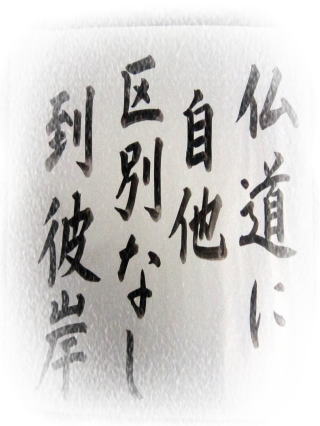 仏道に
自他
区別なし
到彼岸